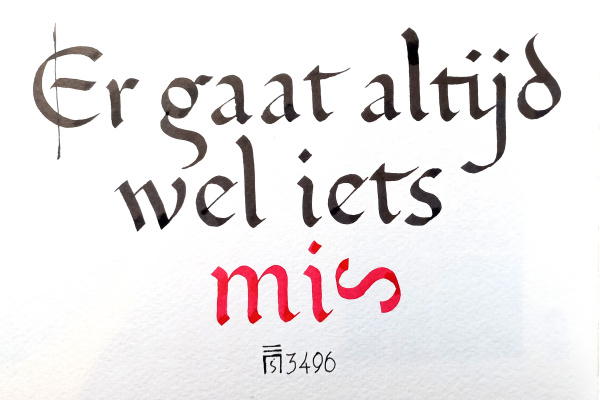 Er gaat altijd
wel iets
mis
3496